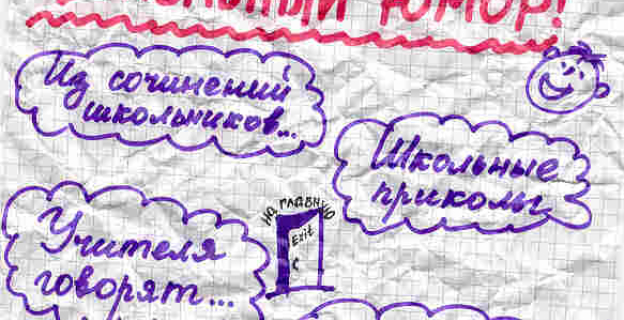 ЮМОР!
Из сочинений
школьников...
Школьные
приколы
на главную
Exit
Учителя
говорят...